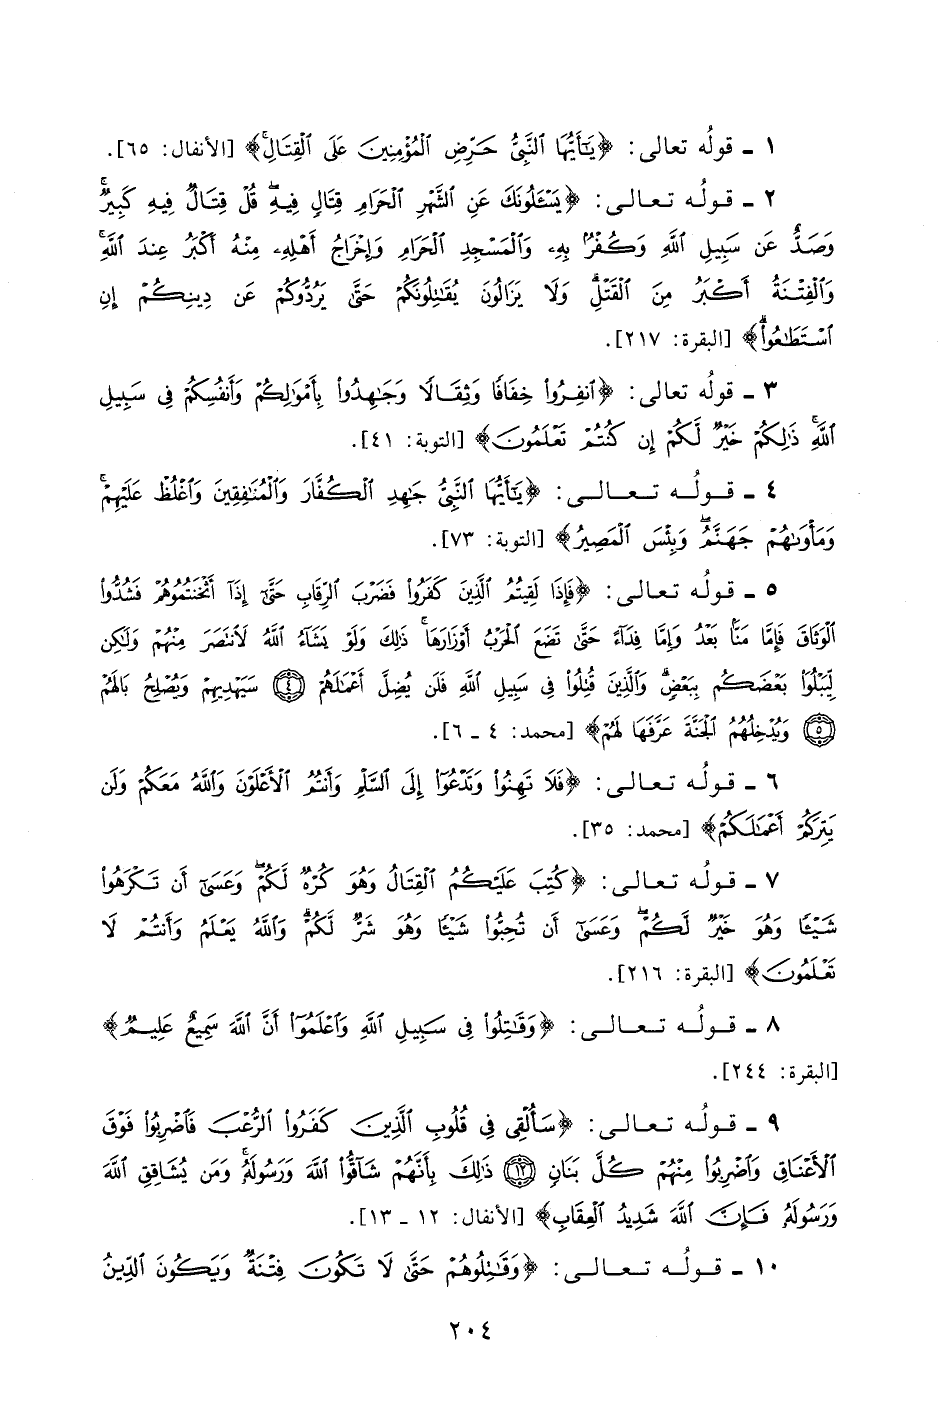 ١ ـ قولُه تعالى: ﴿يَـٰٓأَيُّهَا ٱلنَّبِىُّ حَرِّضِ ٱلْمُؤْمِنِينَ عَلَى ٱلْقِتَالِۚ﴾ [الأنفال: ٦٥].
٢ ـ قولُه تعالى: ﴿يَسْـَٔلُونَكَ عَنِ ٱلشَّهْرِ ٱلْحَرَامِ قِتَالٍ فِيهِۖ قُلْ قِتَالٌ فِيهِ كَبِيرٌۚ
وَصَدٌّ عَن سَبِيلِ ٱللَّهِ وَكُفْرٌۢ بِهِۦ وَٱلْمَسْجِدِ ٱلْحَرَامِ وَإِخْرَاجُ أَهْلِهِۦ مِنْهُ أَكْبَرُ عِندَ ٱللَّهِۚ
وَٱلْفِتْنَةُ أَكْبَرُ مِنَ ٱلْقَتْلِۗ وَلَا يَزَالُونَ يُقَـٰتِلُونَكُمْ حَتَّىٰ يَرُدُّوكُمْ عَن دِينِكُمْ إِنِ
ٱسْتَطَـٰعُوا۟ۚ﴾ [البقرة: ٢١٧].
٣ ـ قولُه تعالى: ﴿ٱنفِرُوا۟ خِفَافًا وَثِقَالًا وَجَـٰهِدُوا۟ بِأَمْوَٰلِكُمْ وَأَنفُسِكُمْ فِى سَبِيلِ
ٱللَّهِۚ ذَٰلِكُمْ خَيْرٌ لَّكُمْ إِن كُنتُمْ تَعْلَمُونَ﴾ [التوبة: ٤١].
٤ ـ قولُه تعالى: ﴿يَـٰٓأَيُّهَا ٱلنَّبِىُّ جَـٰهِدِ ٱلْكُفَّارَ وَٱلْمُنَـٰفِقِينَ وَٱغْلُظْ عَلَيْهِمْۚ
وَمَأْوَىٰهُمْ جَهَنَّمُۖ وَبِئْسَ ٱلْمَصِيرُ﴾ [التوبة: ٧٣].
٥ ـ قولُه تعالى: ﴿فَإِذَا لَقِيتُمُ ٱلَّذِينَ كَفَرُوا۟ فَضَرْبَ ٱلرِّقَابِ حَتَّىٰٓ إِذَآ أَثْخَنتُمُوهُمْ فَشُدُّوا۟
ٱلْوَثَاقَ فَإِمَّا مَنًّۢا بَعْدُ وَإِمَّا فِدَآءً حَتَّىٰ تَضَعَ ٱلْحَرْبُ أَوْزَارَهَاۚ ذَٰلِكَ وَلَوْ يَشَآءُ ٱللَّهُ لَٱنتَصَرَ مِنْهُمْ وَلَـٰكِن
لِّيَبْلُوَا۟ بَعْضَكُم بِبَعْضٍۗ وَٱلَّذِينَ قُتِلُوا۟ فِى سَبِيلِ ٱللَّهِ فَلَن يُضِلَّ أَعْمَـٰلَهُمْ ۝٤ سَيَهْدِيهِمْ وَيُصْلِحُ بَالَهُمْ
۝٥ وَيُدْخِلُهُمُ ٱلْجَنَّةَ عَرَّفَهَا لَهُمْ﴾ [محمد: ٤ ـ ٦].
٦ ـ قولُه تعالى: ﴿فَلَا تَهِنُوا۟ وَتَدْعُوٓا۟ إِلَى ٱلسَّلْمِ وَأَنتُمُ ٱلْأَعْلَوْنَ وَٱللَّهُ مَعَكُمْ وَلَن
يَتِرَكُمْ أَعْمَـٰلَكُمْ﴾ [محمد: ٣٥].
٧ ـ قولُه تعالى: ﴿كُتِبَ عَلَيْكُمُ ٱلْقِتَالُ وَهُوَ كُرْهٌ لَّكُمْۖ وَعَسَىٰٓ أَن تَكْرَهُوا۟
شَيْـًٔا وَهُوَ خَيْرٌ لَّكُمْۖ وَعَسَىٰٓ أَن تُحِبُّوا۟ شَيْـًٔا وَهُوَ شَرٌّ لَّكُمْۗ وَٱللَّهُ يَعْلَمُ وَأَنتُمْ لَا
تَعْلَمُونَ﴾ [البقرة: ٢١٦].
٨ ـ قولُه تعالى: ﴿وَقَـٰتِلُوا۟ فِى سَبِيلِ ٱللَّهِ وَٱعْلَمُوٓا۟ أَنَّ ٱللَّهَ سَمِيعٌ عَلِيمٌ﴾
[البقرة: ٢٤٤].
٩ ـ قولُه تعالى: ﴿سَأُلْقِى فِى قُلُوبِ ٱلَّذِينَ كَفَرُوا۟ ٱلرُّعْبَ فَٱضْرِبُوا۟ فَوْقَ
ٱلْأَعْنَاقِ وَٱضْرِبُوا۟ مِنْهُمْ كُلَّ بَنَانٍ ۝١٢ ذَٰلِكَ بِأَنَّهُمْ شَآقُّوا۟ ٱللَّهَ وَرَسُولَهُۥۚ وَمَن يُشَاقِقِ ٱللَّهَ
وَرَسُولَهُۥ فَإِنَّ ٱللَّهَ شَدِيدُ ٱلْعِقَابِ﴾ [الأنفال: ١٢ ـ ١٣].
١٠ ـ قولُه تعالى: ﴿وَقَـٰتِلُوهُمْ حَتَّىٰ لَا تَكُونَ فِتْنَةٌ وَيَكُونَ ٱلدِّينُ
٢٠٤